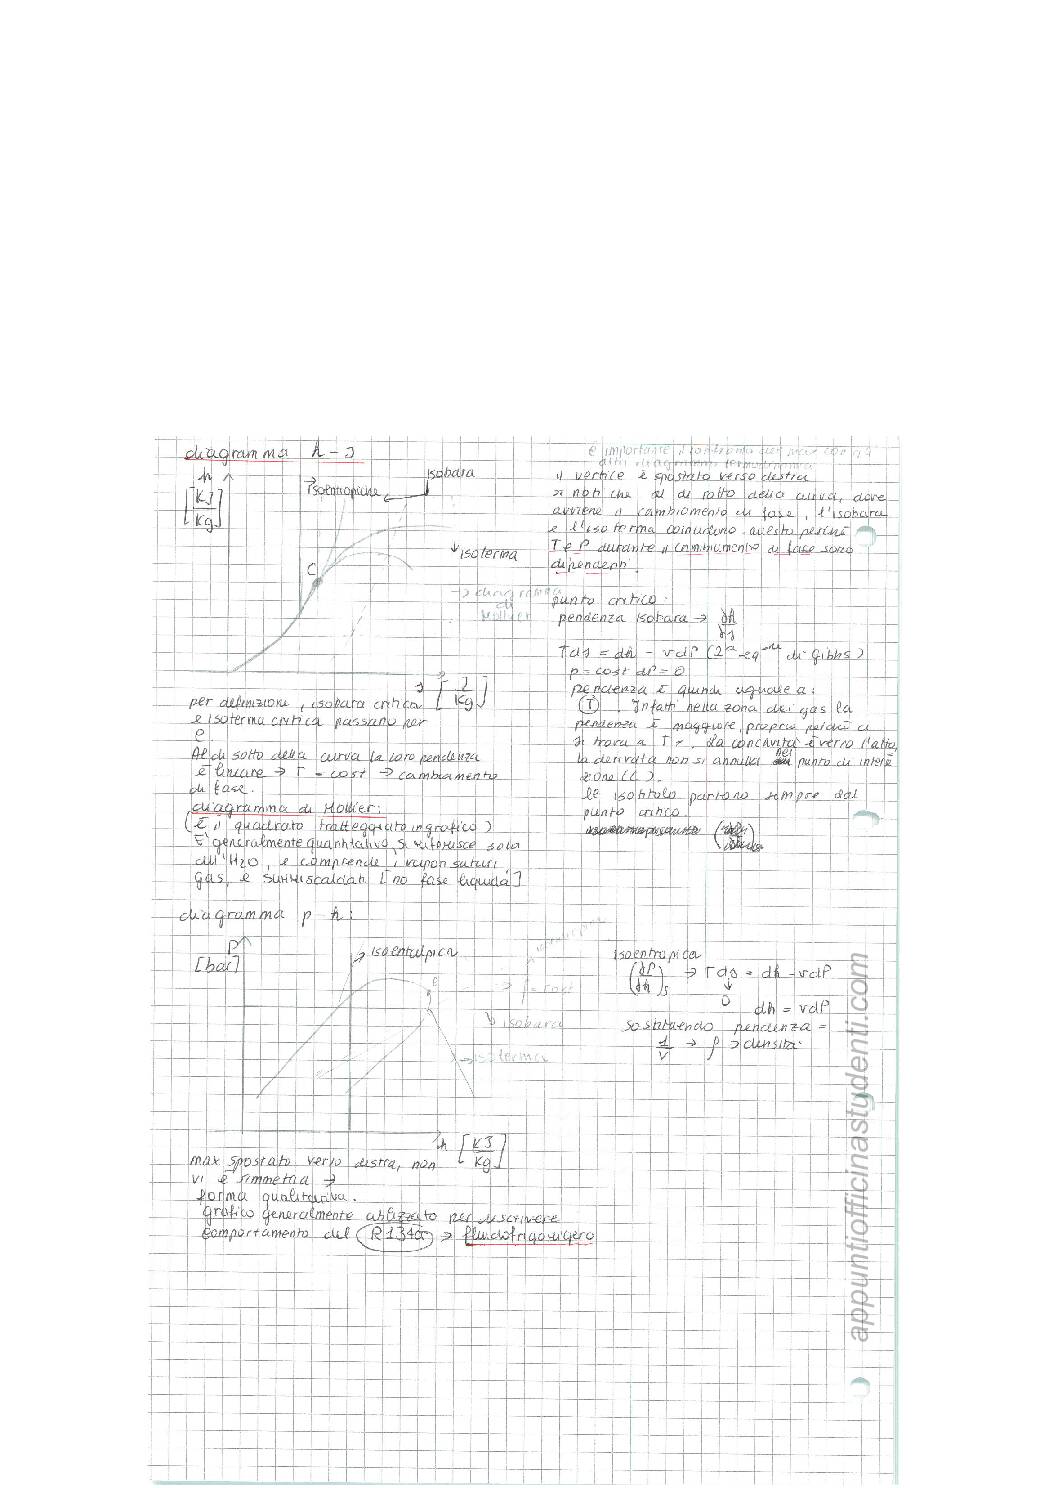 diagramma h-s
h
[KJ/Kg]
Isoentropiche
isobara
isoterma
C
→ diagramma
di
Mollier
s [J/Kg]
per definizione, isobara critica
e isoterma critica passano per
C.
Al di sotto della curva la loro pendenza
è lineare → T = cost → cambiamento
di fase.
diagramma di Mollier:
(È il quadrato tratteggiato in grafico)
E' generalmente quantitativo, si riferisce solo
all'H2O, e comprende i vapori saturi,
gas, e surriscaldati [no fase liquida]
è importante il confronto con
altri diagrammi termodinamica
il vertice è spostato verso destra
si noti che al di sotto della curva, dove
avviene il cambiamento di fase, l'isobara
e l'isoterma coincidono. questo perché
T e P durante il cambiamento di fase sono
dipendenti.
punto critico:
pendenza isobara → dh/ds
Tds = dh - vdP (2a eq.ne di Gibbs)
p = cost dP = 0
pendenza è quindi uguale a:
T. Infatti nella zona dei gas la
pendenza è maggiore, proprio perché ci
si trova a T. La concavità è verso l'alto,
la derivata non si annulla nel punto di
zone (C).
le isotitolo partono sempre dal
punto critico
diagramma p h:
P
[bar]
isoentalpica
isobara
isoterma
h [KJ/Kg]
isoentropica
(dP/dh)s → Tds = dh - vdP
↓
0
dh = vdP
sostituendo pendenza =
1/v → ρ → densità
max spostato verso destra, non
vi è simmetria →
forma qualitativa.
grafico generalmente utilizzato per descrivere
comportamento del R134a → fluido frigorigero
appuntiofficinastudenti.com